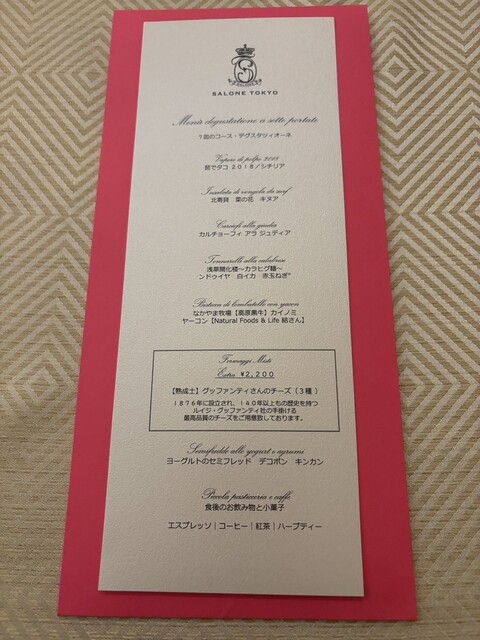 SALONE TOKYO
Menù degustazione a sette portate
7皿のコース・デグスタジィオーネ
Vapore di polpo 2018
茹でタコ 2018/シチリア
Insalata di vongola da surf
北寄貝 菜の花 キヌア
Carciofi alla giudia
カルチョーフィ アラ ジュディア
Tonnarelli alla calabrese
浅草開化楼〜カラヒグ麺〜
ンドゥイヤ 白イカ 赤玉ねぎ
Bistecca di lombatello con yacon
なかやま牧場【高原黒牛】カイノミ
ヤーコン【Natural Foods & Life 結さん】
Formaggi Misti
Extra ¥2,200
【熟成士】グッファンティさんのチーズ（3種）
1876年に設立され、140年以上もの歴史を持つ
ルイジ・グッファンティ社の手掛ける
最高品質のチーズをご用意致しております。
Semifreddo allo yogurt e agrumi
ヨーグルトのセミフレッド デコポン キンカン
Piccola pasticceria e caffè
食後のお飲み物と小菓子
エスプレッソ｜コーヒー｜紅茶｜ハーブティー